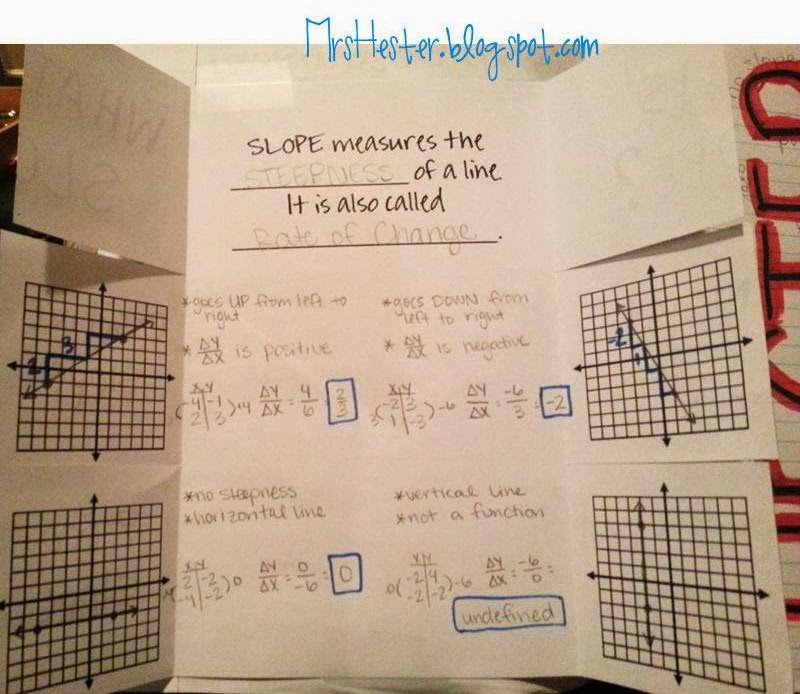 MrsHester.blogspot.com
WHA
SLO
?
SLOPE measures the
STEEPNESS of a line.
It is also called
Rate of Change.
*goes UP from left to
right
* ΔY/ΔX is positive
X|Y
-4|-1
2|3
+4
ΔY/ΔX = 4/6 = 2/3
*goes DOWN from
left to right
* ΔY/ΔX is negative
X|Y
-2|3
1|-3
3
-6
ΔY/ΔX = -6/3 = -2
2
3
-2
1
*no steepness
*horizontal line
X|Y
2|-2
-4|-2
0
ΔY/ΔX = 0/-6 = 0
*vertical line
*not a function
X|Y
-2|4
-2|-2
0
-6
ΔY/ΔX = -6/0 =
undefined
no slope